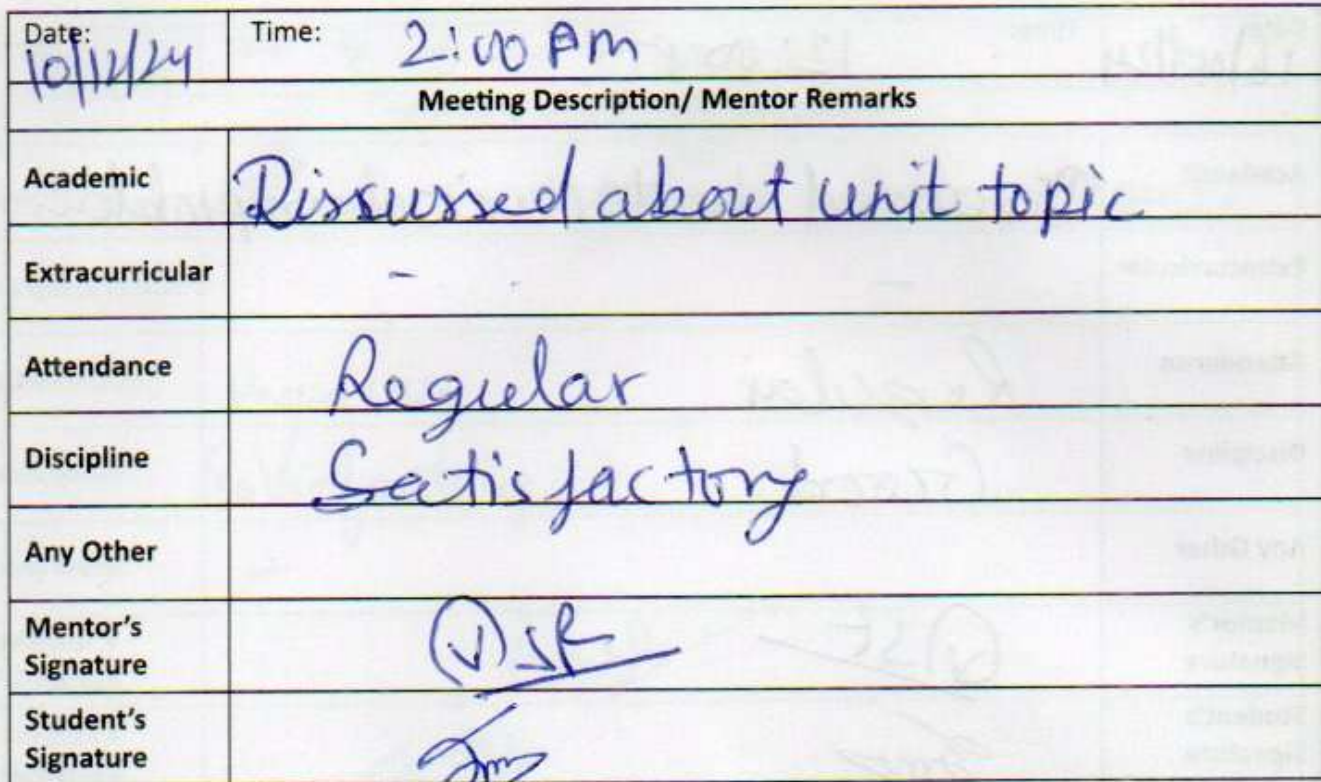 Date: 10/12/24 Time: 2:00 Pm
Meeting Description/ Mentor Remarks
Academic Dissussed about unit topic
Extracurricular -
Attendance Regular
Discipline Satisfactory
Any Other
Mentor's
Signature
Student's
Signature